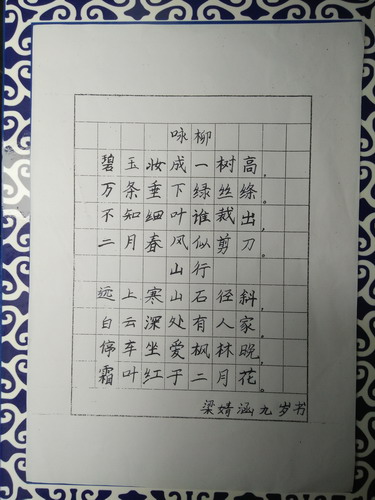 咏柳
碧玉妆成一树高，
万条垂下绿丝绦。
不知细叶谁裁出，
二月春风似剪刀。
山行
远上寒山石径斜，
白云深处有人家，
停车坐爱枫林晚，
霜叶红于二月花。
梁婧涵九岁书